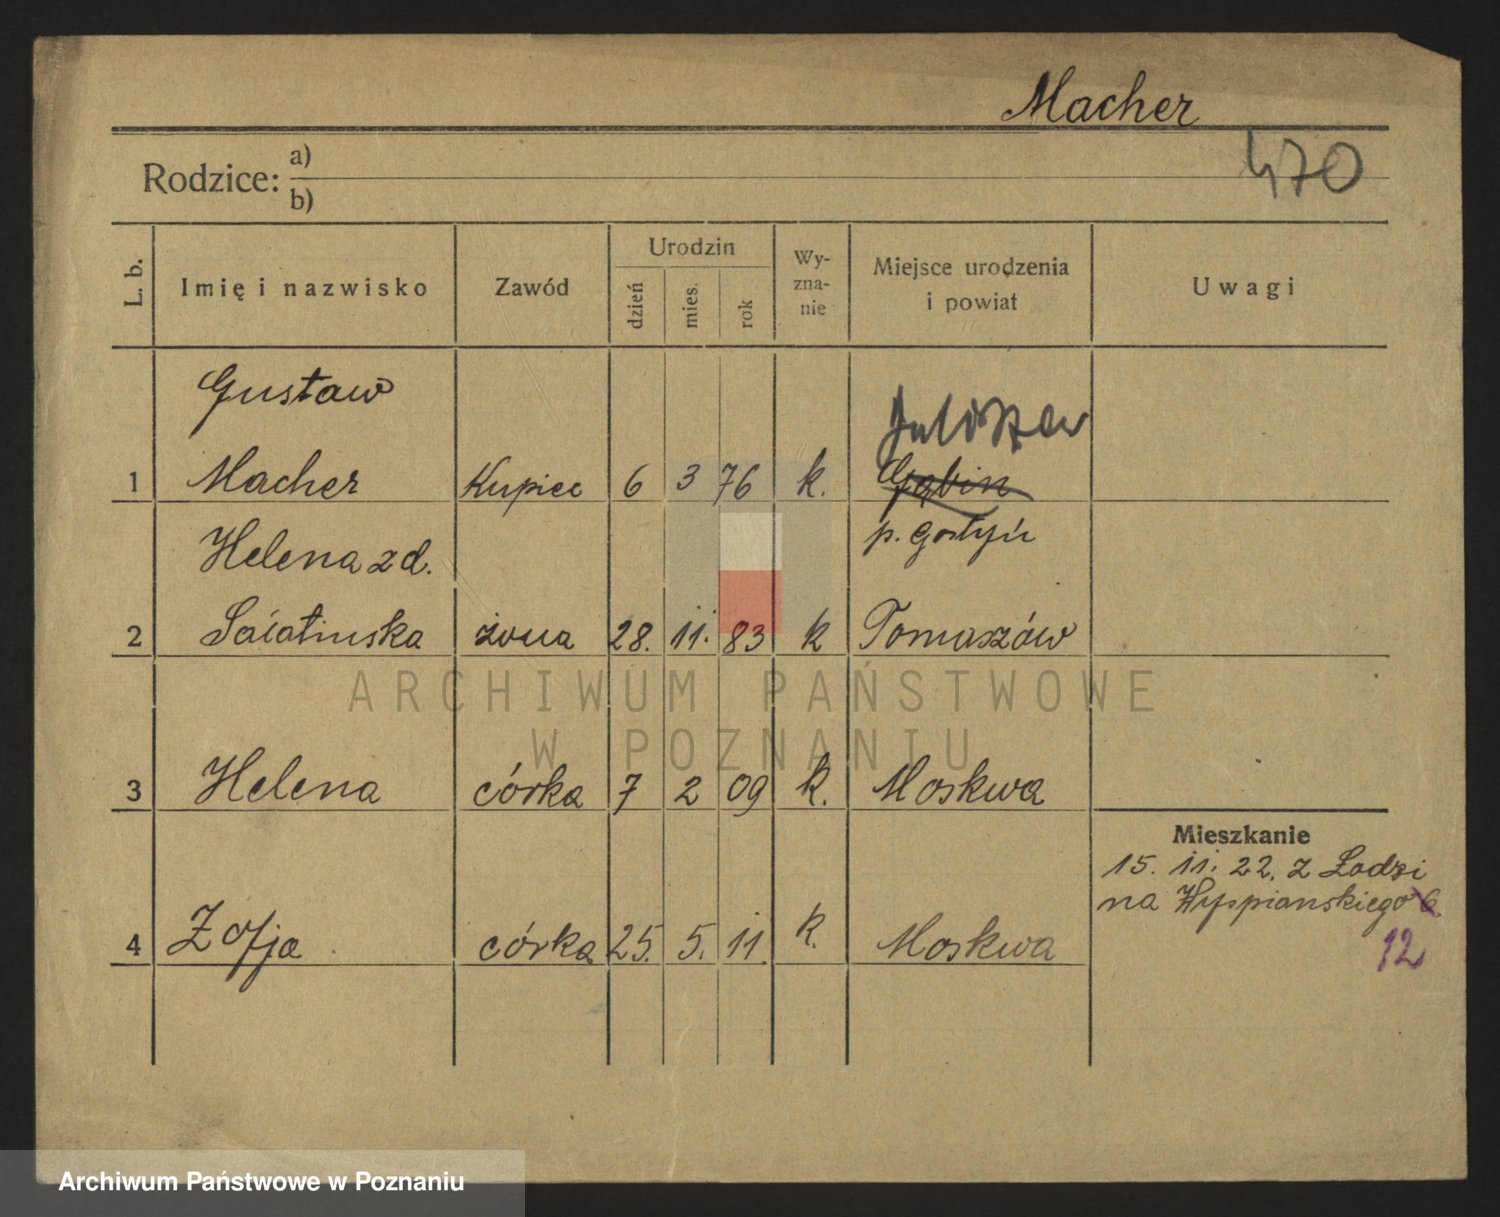 Macher
470
Rodzice: a)
b)
L. b.
Imię i nazwisko
Zawód
Urodzin
dzień
mies.
rok
Wy-
zna-
nie
Miejsce urodzenia
i powiat
Uwagi
Gustaw
1 Macher Kupiec 6 3 76 k. Gąbin
p. Gostyń
Helena z d.
2 żona 28. 11. 83 k Tomaszów
3 Helena córka 7 2 09 k. Moskwa
Mieszkanie
15. 11. 22. z Łodzi
na Wyspianskiego
12
4 Zofja córka 25. 5. 11. k. Moskwa
ARCHIWUM PAŃSTWOWE
W POZNANIU
Archiwum Państwowe w Poznaniu